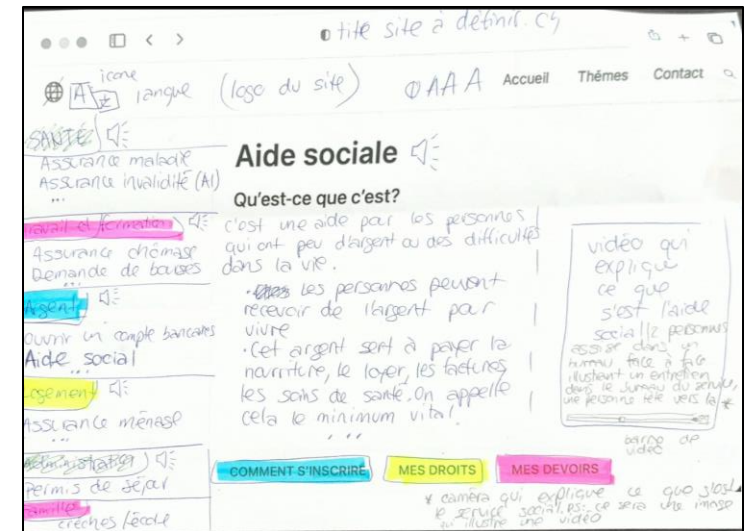 titre site à définir.ch
icone
langue
(logo du site)
A A A
Accueil
Thèmes
Contact
SANTÉ
Assurance maladie
Assurance invalidité (AI)
...
Travail et formation
Assurance chômage
Demande de bourses
...
Argent
ouvrir un compte bancaire
Aide social
Logement
Assurance ménage
...
Administration
Permis de séjour
Famille
crèches / école
Aide sociale
Qu'est-ce que c'est?
c'est une aide pour les personnes
qui ont peu d'argent ou des difficultés
dans la vie.
• Les personnes peuvent
recevoir de l'argent pour
vivre
• Cet argent sert à payer la
nourriture, le loyer, les factures
les soins de santé. On appelle
cela le minimum vital.
...
vidéo qui
explique
ce que
s'est l'aide
sociale
2 personnes
assise dans un
bureau face à face
illustrant un entretien
dans le bureau du service,
une personne tête vers la *
barre de
vidéo
COMMENT S'INSCRIRE
MES DROITS
MES DEVOIRS
* caméra qui explique ce que s'est
le service social. PS: ce sera une image
qui illustre une vidéo